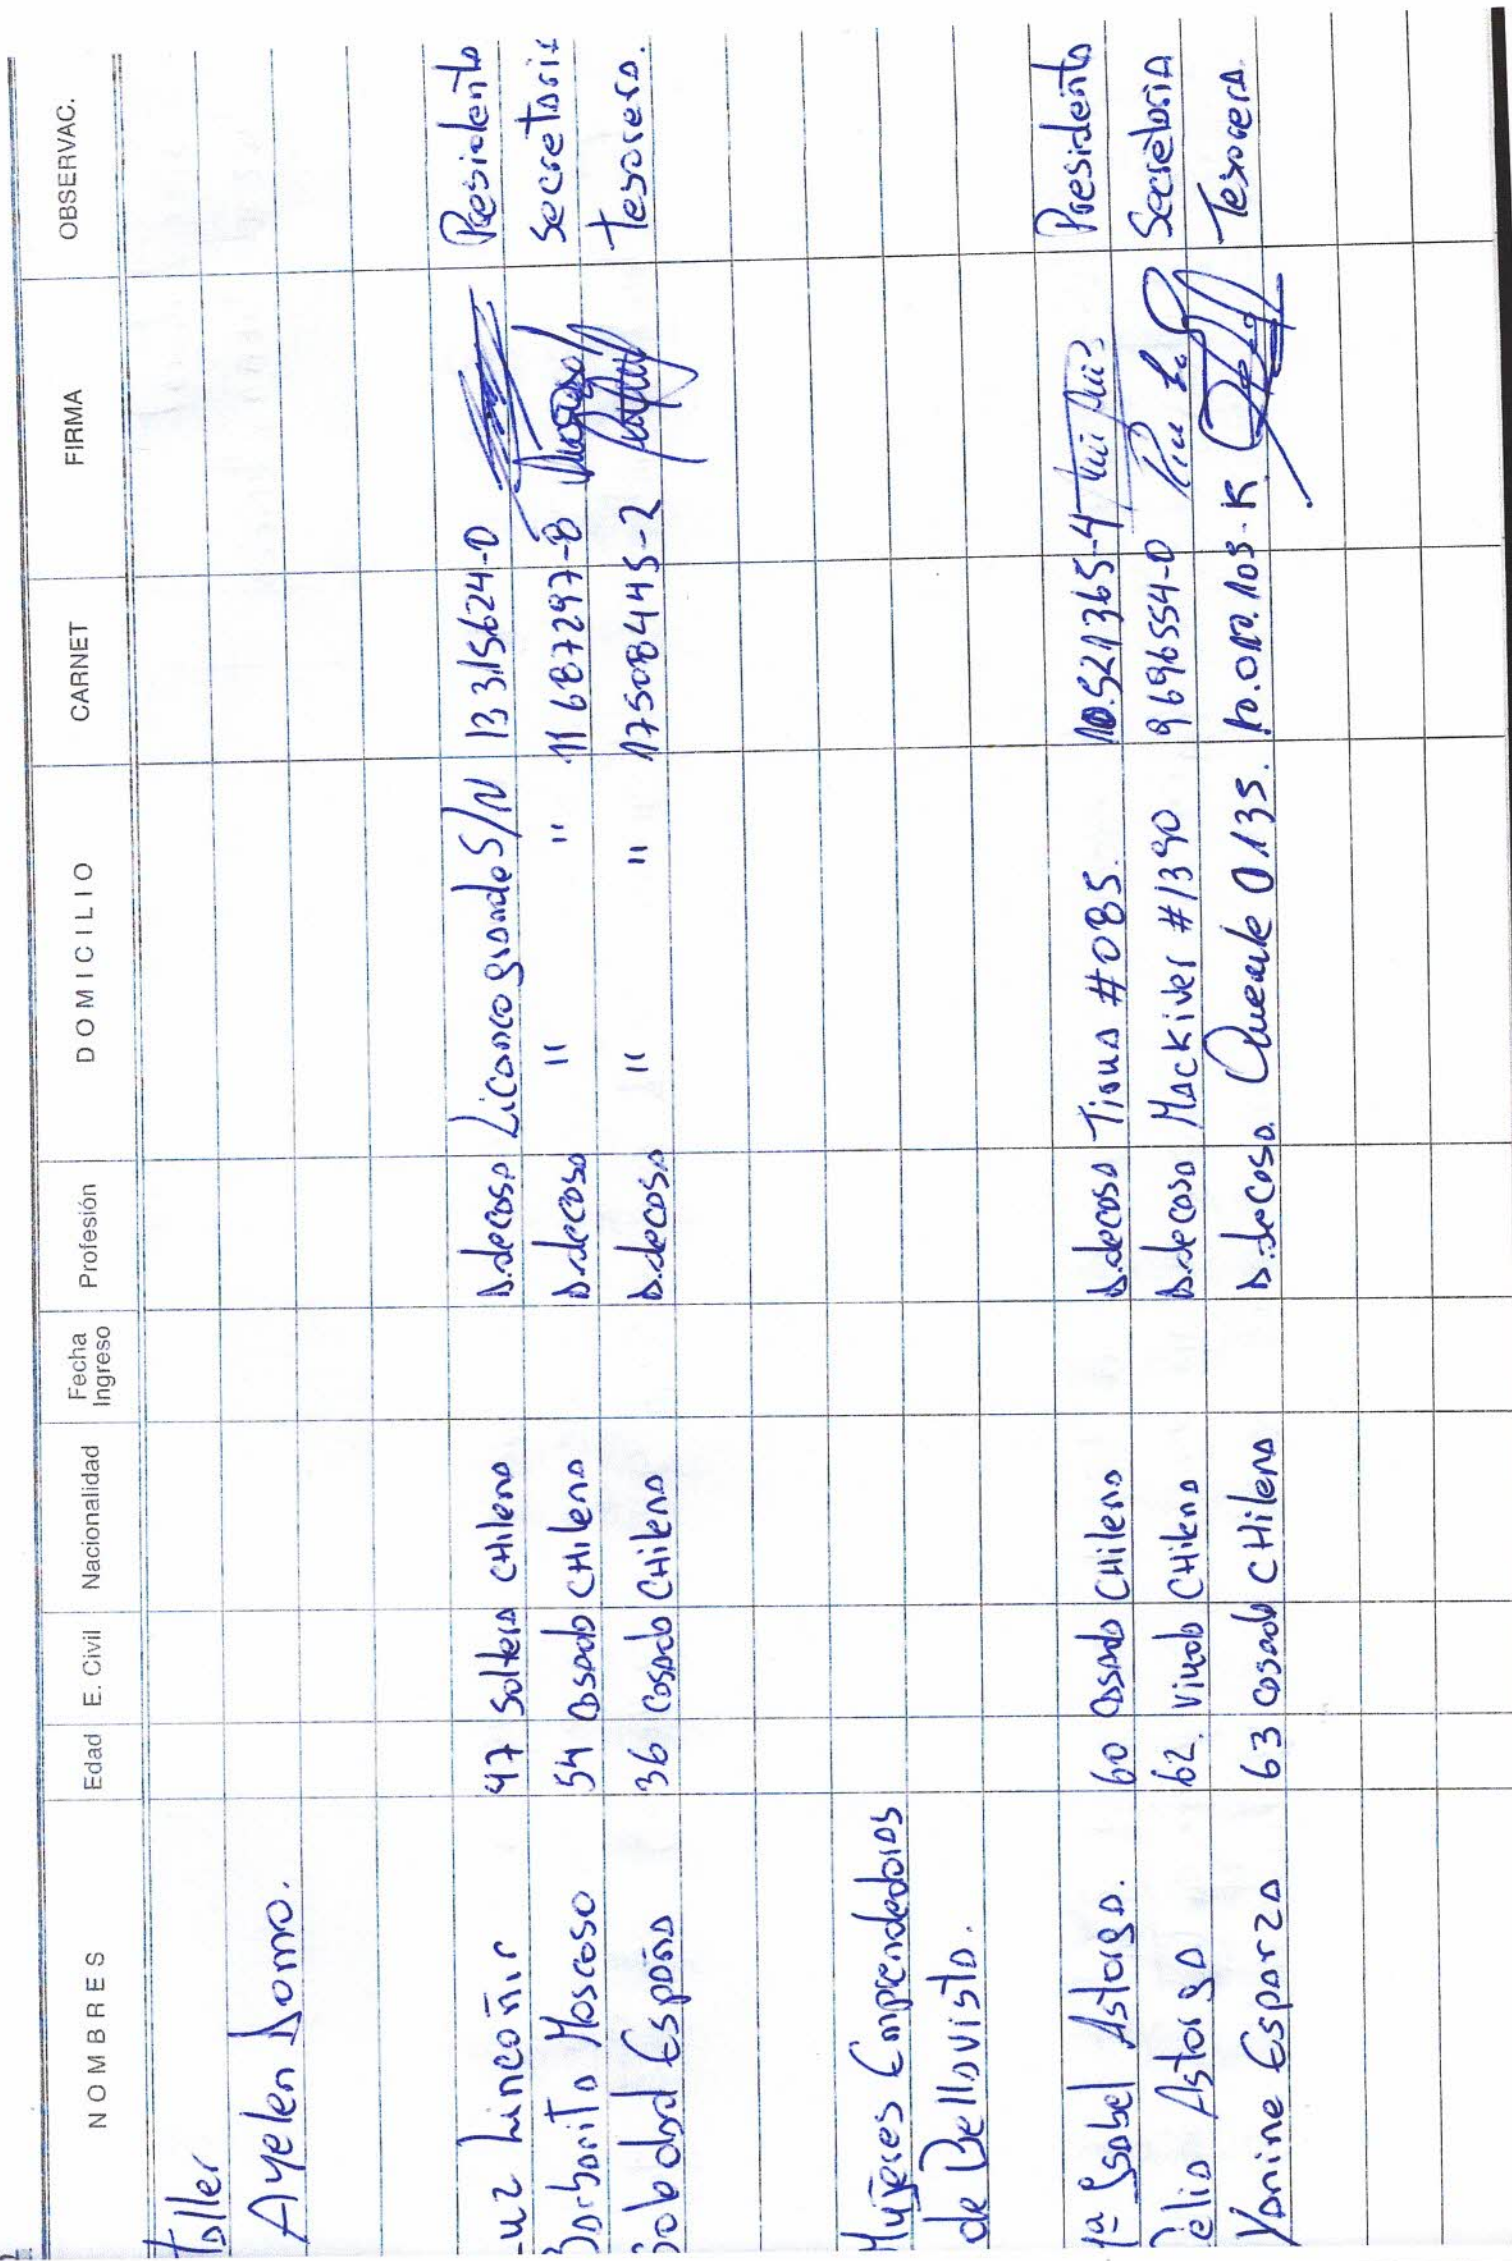 NOMBRES Edad E. Civil Nacionalidad Fecha Ingreso Profesión DOMICILIO CARNET FIRMA OBSERVAC.
Taller
Ayelen Domo.
uz Lincoñir 47 Soltera CHilena D.decasa Licanco grande S/N 13315624-0 Presidenta
Barbarita Moscoso 54 Casada CHilena D.decasa " " 11687297-8 Secretaria
Soledad España 36 Casada CHilena D.decasa " " 17508445-2 Tesorera.
Mujeres Emprendedoras
de Bellavista.
1ª Isabel Astorga. 60 Casada CHilena D.decasa Tirua #085. 10.521365-4 Presidenta
elia Astorga 62. Viuda CHilena D.decasa Mackiver #1390 9696554-0 Secretaria
Yanine Esparza 63 Casada CHilena D.decasa. Queule 0135. 10.012.103-K Tesorera.